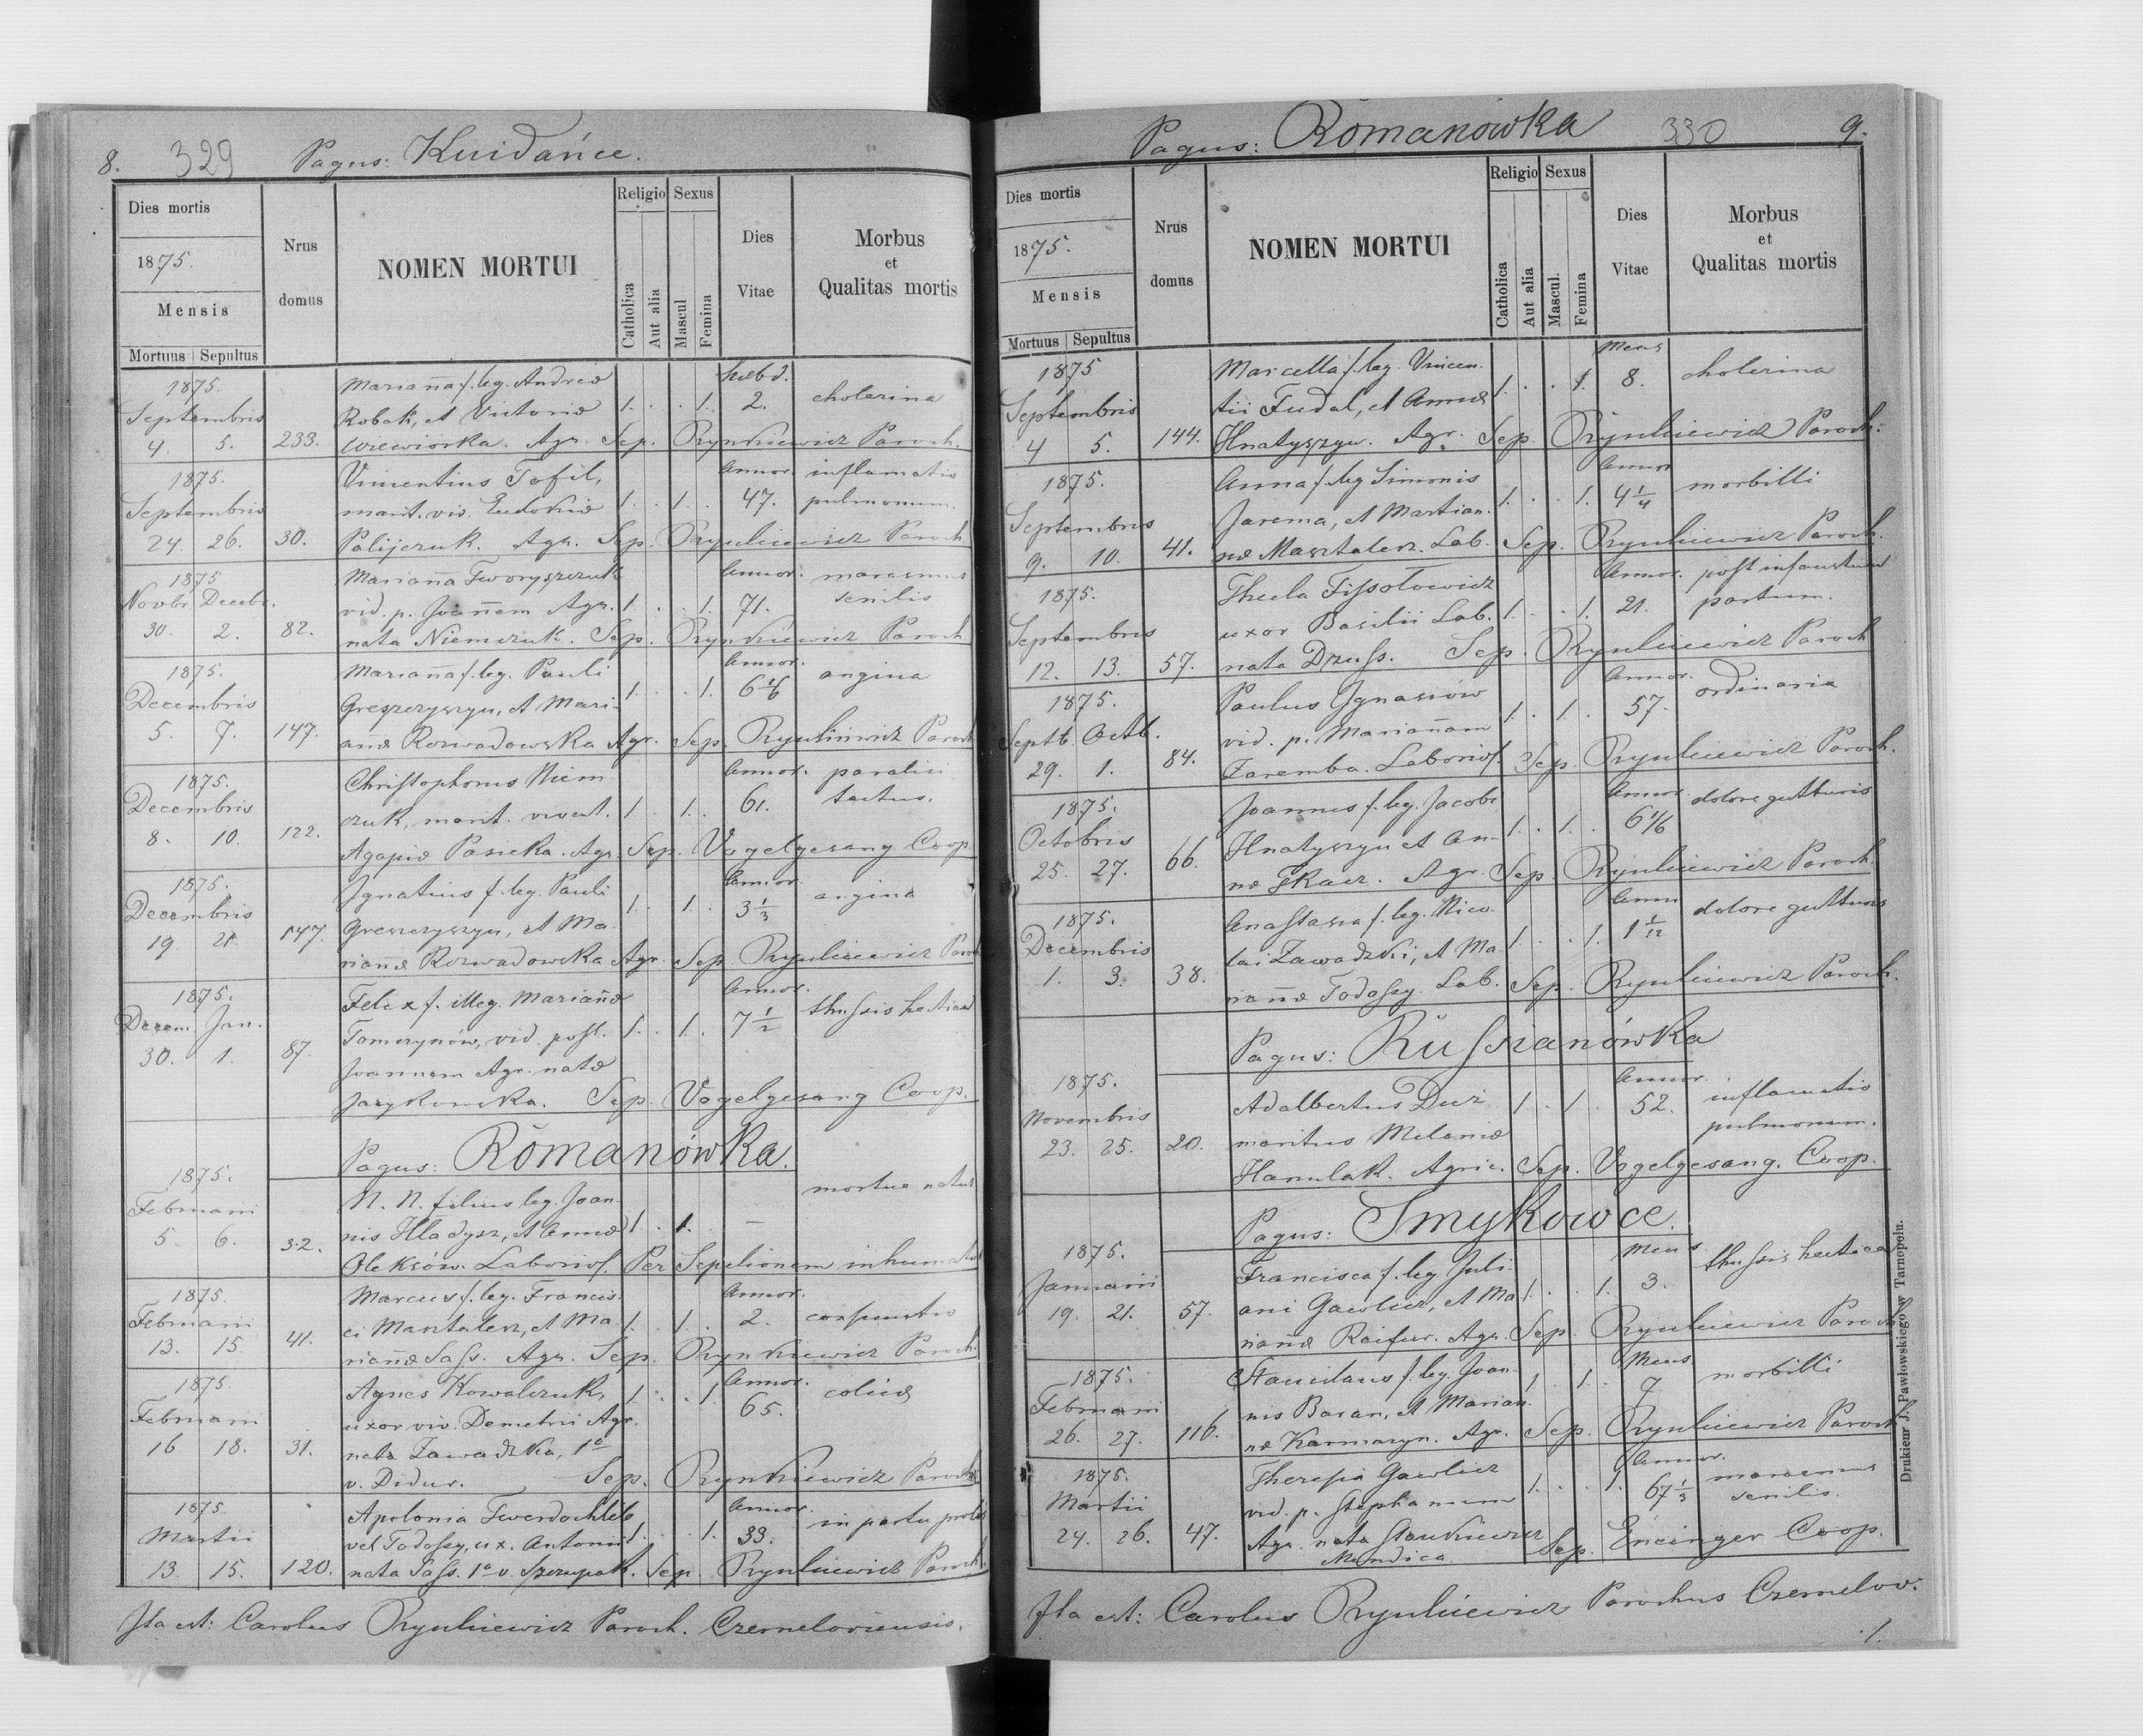 8. 329 Pagus: Kuidańce.
Dies mortis
1875.
Mensis
Mortuus Sepultus
Nrus domus
NOMEN MORTUI
Religio
Catholica
Aut alia
Sexus
Mascul
Femina
Dies Vitae
Morbus
et
Qualitas mortis
1875 Marianna f. leg. Andreæ hebd.
Septembris Robak, et Victoriæ 1. . . 1. 2. cholerina
4. 5. 233. Wiewiorka. Agr. Sep. Rynkiewicz Paroch.
1875. Vincentius Tofil, Annor. inflamatio
Septembris marit. viv. Eudokiæ 1. . 1. . 47. pulmonum
24. 26. 30. Palijczuk. Agr. Sep. Rynkiewicz Paroch
1875 Marianna Tworyszczuk Annor. marasmus
Novbr. Decebr. vid. p. Joannem Agr. 1. . . 1. 71. senilis
30. 2. 82. nata Niemczuk. Sep. Rynkiewicz Paroch
1875. Marianna f. leg. Pauli Annor.
Decembris Greszczyszyn, et Mari- 1. . . 1. 6 1/6 angina
5. 7. 147. anæ Rozwadowska Agr. Sep. Rynkiewicz Paroch
1875. Christophorus Niem Annor. paralisi
Decembris czuk, marit. vivent. 1 . 1. . 61. tactus.
8. 10. 122. Agapiæ Pasieka. Agr. Sep. Vogelgesang Coop.
1875. Ignatius f. leg. Pauli Annor.
Decembris Greszczyszyn, et Ma 1. . 1. . 3 1/3 angina
19 21. 147. riannæ Rozwadowska Agr. Sep Rynkiewicz Paroch
1875. Felix f. illeg. Mariannæ Annor.
Decem. Jan. Tomczynów, vid. post. 1. . 1. . 7 1/2 thussis hectica
30. 1. 87. Joannem Agr. natæ
Jazykowska. Sep. Vogelgesang Coop.
Pagus: Romanówka.
1875. N. N. filius leg. Joan mortuo natus
Februarii nis Hladysz, et Annæ 1. . 1. –
5. 6. 32. Oleksów. Laborios. Per Sepelionem inhumatus
1875. Marcus f. leg. Francis Annor.
Februarii ci Marztalerz, et Ma 1. . 1. . 2.
13. 15. 41. riannæ Sass. Agr. Sep. Rynkiewicz Paroch.
1875 Agnes Kowalczuk, Annor.
Februarii uxor viv. Demetrii Agr. 1. . . 1. 65. colica
16 18. 31. nata Zawadzka, 1o
v. Didur. Sep. Rynkiewicz Paroch
1875 Apolonia Twerdochlib Annor.
Martii vel Todoszy, ux. Antonii 1. . . 1. 33. in partu prolis
13. 15. 120. nata Sass. 1o v. Szczupak. Sep Rynkiewicz Paroch.
Ita est: Carolus Rynkiewicz Paroch. Czerneloviensis.
Pagus: Romanówka 330 9.
Dies mortis
1875.
Mensis
Mortuus Sepultus
Nrus domus
NOMEN MORTUI
Religio
Catholica
Aut alia
Sexus
Mascul.
Femina
Dies Vitae
Morbus
et
Qualitas mortis
1875 Marcella f. leg. Vincen. Mens
Septembris tii Fudal, et Annæ 1. . . 1. 8. cholerina
4 5. 144. Hnatyszyn. Agr. Sep Rynkiewicz Paroch.
1875. Anna f. leg Simonis Annor
Septembris Jarema, et Martian. 1. . . 1. 4 1/4 morbilli
9. 10. 41. næ Masztalerz. Lab. Sep. Rynkiewicz Paroch.
1875. Thecla Fissołowicz Annor. post infaustum
Septembris uxor Basilii Lab. 1. . . 1. 21. partum.
12. 13. 57. nata Druss. Sep. Rynkiewicz Paroch
1875. Paulus Ignasiów Annor.
Septb. Octb. vid. p. Mariannam 1. . 1. . 57. ordinaria
29. 1. 84. Zaremba. Laborios. Sep. Rynkiewicz Paroch.
1875. Joannes f. leg. Jacobi Annor. dolore gutturis
Octobris Hnatyszyn et An- 1. . 1. . 6 1/6
25. 27. 66. næ Tkacz. Agr. Sep Rynkiewicz Paroch.
1875. Anastasia f. leg. Nico Anni
Decembris lai Zawadzki, et Ma 1. . . 1. 1 1/12 dolore gutturis
1. 3. 38. riannæ Todoszy. Lab. Sep. Rynkiewicz Paroch.
Pagus: Russianówka
1875. Annor.
Novembris Adalbertus Duz 1 . 1 . 52. inflamatio
23. 25. 20. maritus Melaniæ pulmonum.
Hanulak. Agric. Sep. Vogelgesang. Coop.
Pagus: Smykowce.
1875. Francisca f. leg. Juli Mens
Januarii ani Gawlicz, et Ma 1. . . 1. 3. thussis hectica
19. 21. 57. riannæ Agr. Sep. Rynkiewicz Paroch
1875. Stanislaus f. leg. Joan- Mens
Februarii nis Baran, et Marian 1. . 1. . 7 morbilli
26. 27. 116. næ Karmazyn. Agr. Sep. Rynkiewicz Paroch
1875. Theresia Gawlicz Annor.
Martii vid. p. Stephanum 1. . . 1. 67 1/3 marasmus senilis.
24. 26. 47. Agr. nata Stankiewicz Sep. Encinger Coop.
Mendica.
Ita est: Carolus Rynkiewicz Parochus Czernelov.
1.
Drukiem J. Pawłowskiego w Tarnopolu.